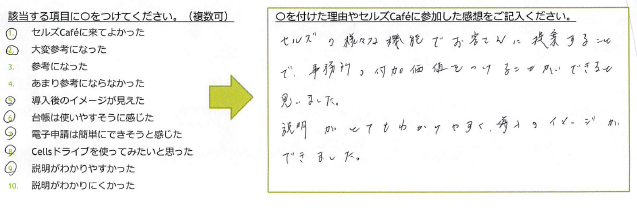 該当する項目に〇をつけてください。（複数可）
1. セルズCaféに来てよかった
2. 大変参考になった
3. 参考になった
4. あまり参考にならなかった
5. 導入後のイメージが見えた
6. 台帳は使いやすそうに感じた
7. 電子申請は簡単にできそうと感じた
8. Cellsドライブを使ってみたいと思った
9. 説明がわかりやすかった
10. 説明がわかりにくかった
〇を付けた理由やセルズCaféに参加した感想をご記入ください。
セルズの様々な機能でお客さんに提案すること
で、事務所の付加価値をつけることができると
思いました。
説明がとてもわかりやすく、導入のイメージが
できました。